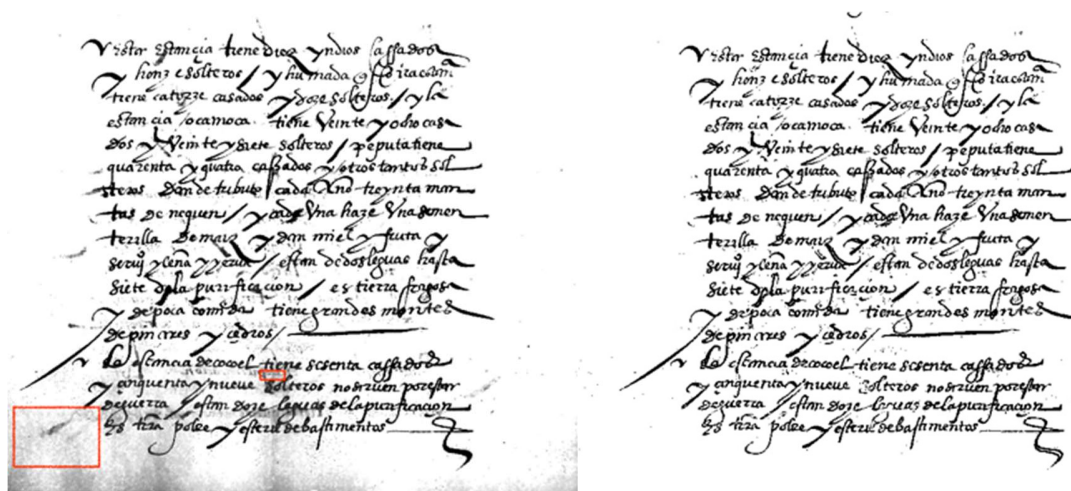 estancia tiene dies yndios cassados
y honze solteros / y humada
tiene catorze casados y doze solteros / y la
estancia ocamoca tiene Veinte y ocho casa
dos y Veinte y siete solteros / peputa tiene
quarenta y quatro cassados y otros tantos sol
teros dan de tributo cada Año treynta man
tas de nequen / y cada Vna haze Vna semen
terilla de maiz y dan miel y fruta y
leña y yerua / estan de dos leguas hasta
siete de la purificacion / es tierra fragosa
y de poca comida tiene grandes montes
de pinares y cedros /
La estancia de cocoel tiene sesenta cassados
y cinquenta y nueve solteros no siruen por estar
de guerra / estan doze leguas de la purificacion
tierra y esteril de bastimentos
estancia tiene dies yndios cassados
y honze solteros / y humada
tiene catorze casados y doze solteros / y la
estancia ocamoca tiene Veinte y ocho casa
dos y Veinte y siete solteros / peputa tiene
quarenta y quatro cassados y otros tantos sol
teros dan de tributo cada Año treynta man
tas de nequen / y cada Vna haze Vna semen
terilla de maiz y dan miel y fruta y
leña y yerua / estan de dos leguas hasta
siete de la purificacion / es tierra fragosa
y de poca comida tiene grandes montes
de pinares y cedros /
La estancia de cocoel tiene sesenta cassados
y cinquenta y nueve solteros no siruen por estar
de guerra / estan doze leguas de la purificacion
tierra y esteril de bastimentos